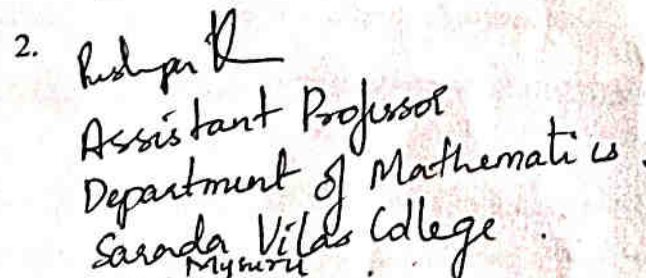 2.
Assistant Professor
Department of Mathematics.
Sarada Vilas College.
Mysuru